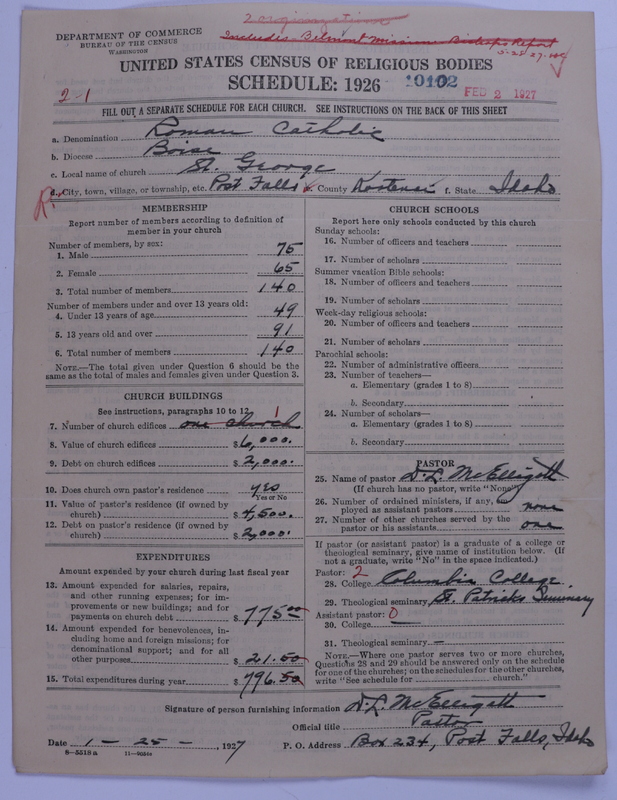 2 organizations
DEPARTMENT OF COMMERCE
BUREAU OF THE CENSUS
WASHINGTON
Includes Belmont Mission Bishops Report
5-25-27
UNITED STATES CENSUS OF RELIGIOUS BODIES
SCHEDULE: 1926
10102
FEB 2 1927
2-1
FILL OUT A SEPARATE SCHEDULE FOR EACH CHURCH. SEE INSTRUCTIONS ON THE BACK OF THIS SHEET
a. Denomination Roman Catholic
b. Diocese Boise
c. Local name of church St. George
R. d. City, town, village, or township, etc. Post Falls e. County Kootenai f. State Idaho
MEMBERSHIP
Report number of members according to definition of
member in your church
Number of members, by sex:
1. Male 75
2. Female 65
3. Total number of members 140
Number of members under and over 13 years old:
4. Under 13 years of age 49
5. 13 years old and over 91
6. Total number of members 140
NOTE.—The total given under Question 6 should be
same as the total of males and females given under Question 3.
CHURCH BUILDINGS
See instructions, paragraphs 10 to 12
7. Number of church edifices one church 1
8. Value of church edifices $6,000.
9. Debt on church edifices $2,000.
10. Does church own pastor's residence yes
Yes or No
11. Value of pastor's residence (if owned by
church) $4,500.
12. Debt on pastor's residence (if owned by
church) $2,000.
EXPENDITURES
Amount expended by your church during last fiscal year
13. Amount expended for salaries, repairs,
and other running expenses; for im-
provements or new buildings; and for
payments on church debt $775.00
14. Amount expended for benevolences, in-
cluding home and foreign missions; for
denominational support; and for all
other purposes $21.50
15. Total expenditures during year $796.50
CHURCH SCHOOLS
Report here only schools conducted by this church
Sunday schools:
16. Number of officers and teachers
17. Number of scholars
Summer vacation Bible schools:
18. Number of officers and teachers
19. Number of scholars
Week-day religious schools:
20. Number of officers and teachers
21. Number of scholars
Parochial schools:
22. Number of administrative officers
23. Number of teachers—
a. Elementary (grades 1 to 8)
b. Secondary
24. Number of scholars—
a. Elementary (grades 1 to 8)
b. Secondary
PASTOR
25. Name of pastor D. L. McElligott
(If church has no pastor, write "None")
26. Number of ordained ministers, if any, em-
ployed as assistant pastors none
27. Number of other churches served by the
pastor or his assistants one
If pastor (or assistant pastor) is a graduate of a college or
theological seminary, give name of institution below. (If
not a graduate, write "No" in the space indicated.)
Pastor: 2
28. College Columbia College.
29. Theological seminary St. Patricks Seminary
Assistant pastor: 0
30. College —
31. Theological seminary —
NOTE.—Where one pastor serves two or more churches,
Questions 28 and 29 should be answered only on the schedule
for one of the churches; on the schedules for the other churches,
write "See schedule for church."
Signature of person furnishing information D. L. McElligott
Official title Pastor
Date 1-25-, 1927 P. O. Address Box 234, Post Falls, Idaho
8-5518 a